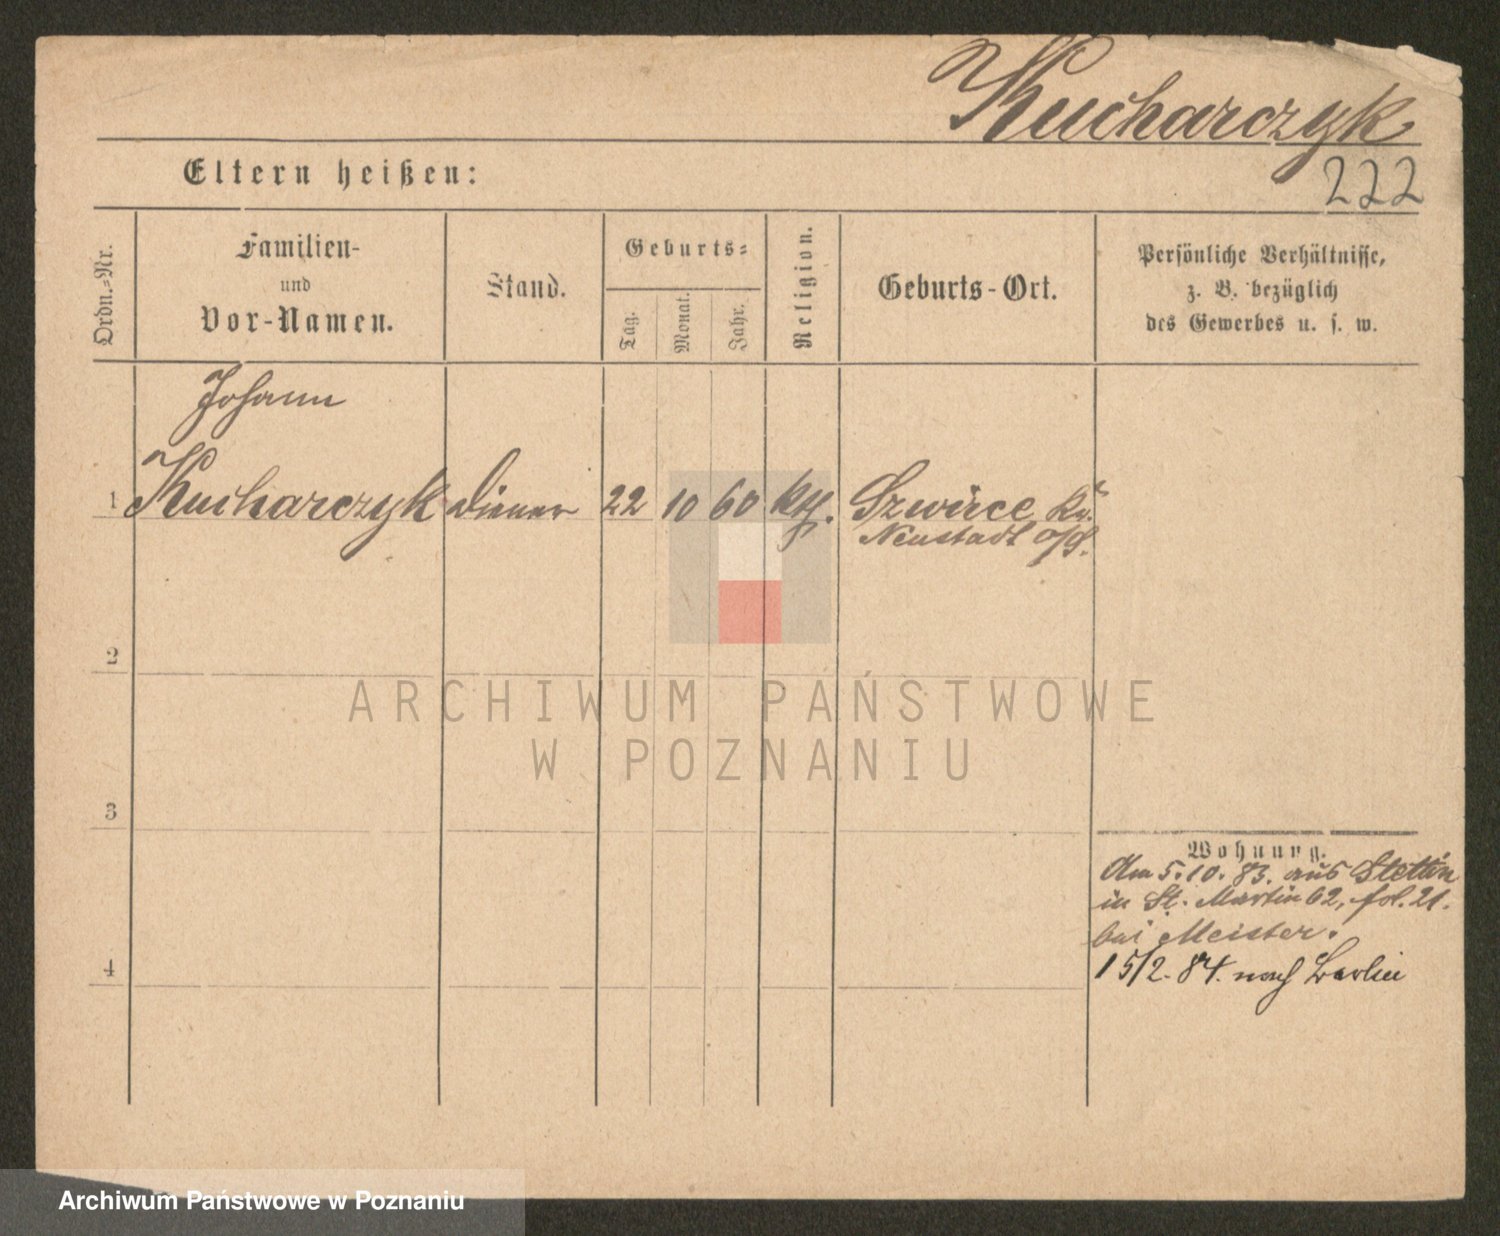 Kucharczyk
222
Eltern heißen:
Ordn.-Nr.
Familien-
und
Vor-Namen.
Stand.
Geburts-
Tag.
Monat.
Jahr.
Religion.
Geburts-Ort.
Persönliche Verhältnisse,
z. B. bezüglich
des Gewerbes u. s. w.
Johann
1 Kucharczyk Diener 22 10 60 kth. Szwirce Kr.
Neustadt o/S.
2
3
4
Wohnung.
Am 5.10.83. aus Stettin
in St. Martin 62, fol. 21.
bei Meister.
15/2.84. nach Berlin
ARCHIWUM PAŃSTWOWE
W POZNANIU
Archiwum Państwowe w Poznaniu